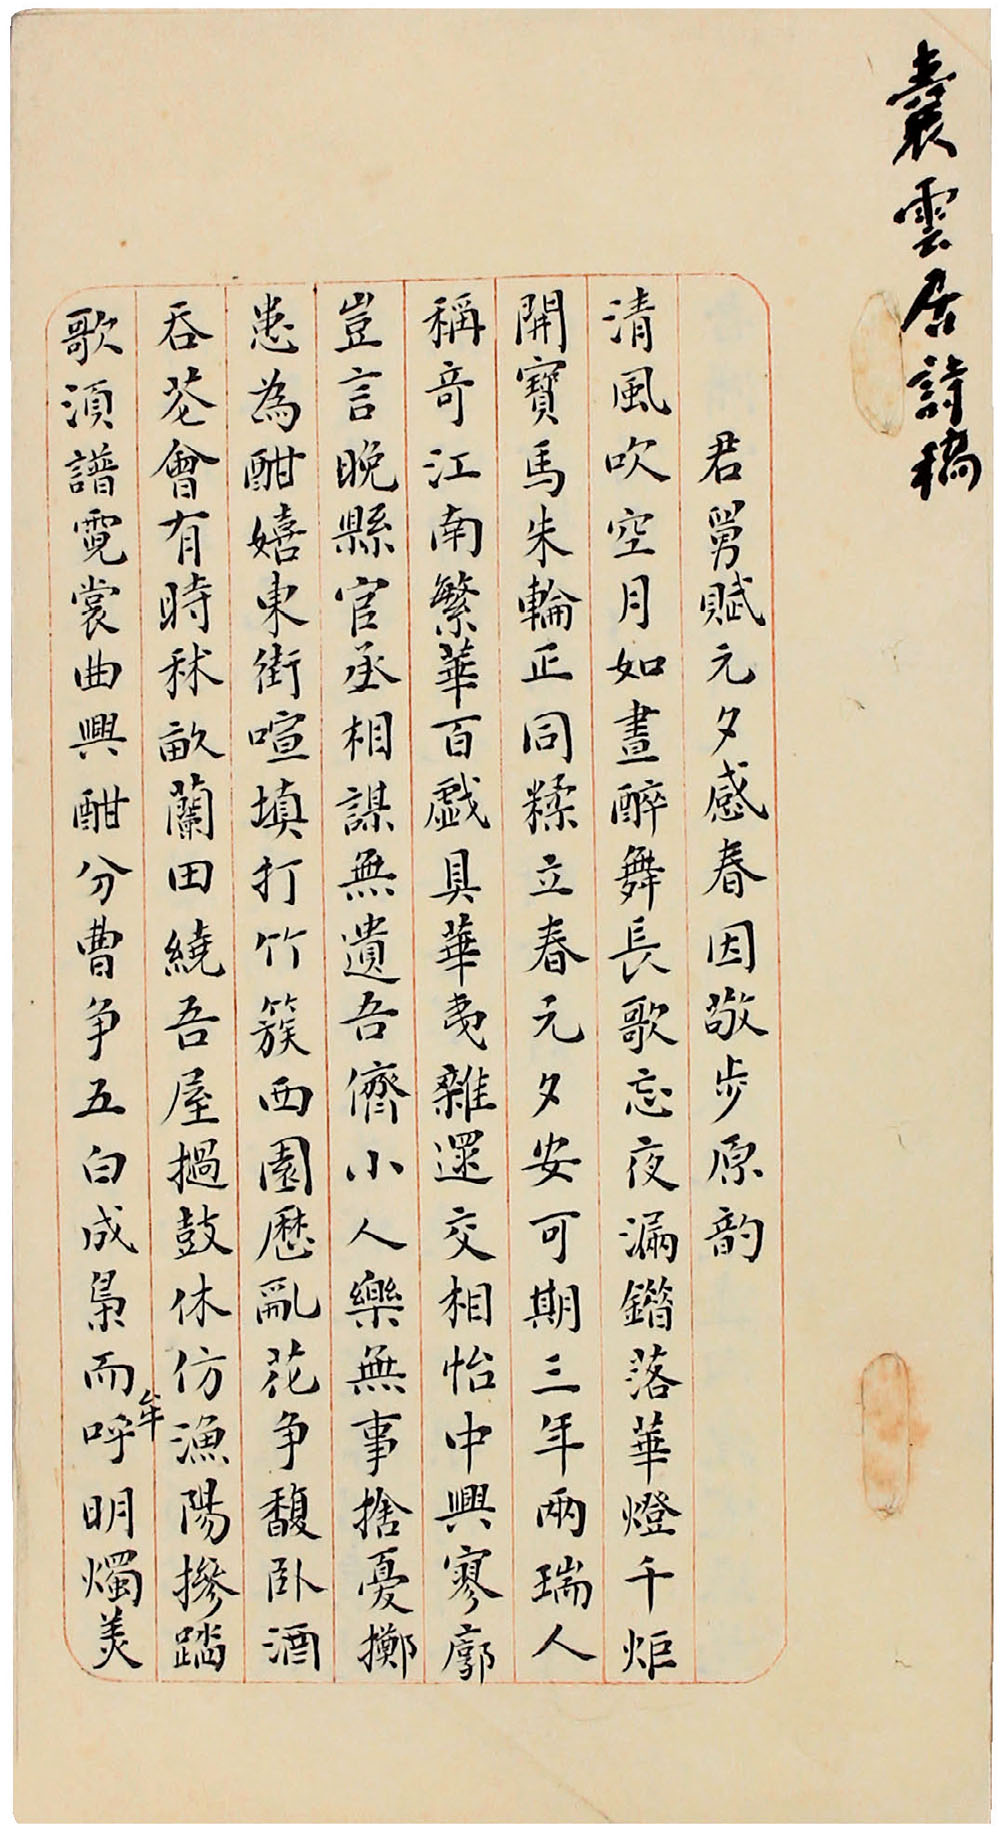 囊雲居詩稿
君舅賦元夕感春因敬步原韵
清風吹空月如晝醉舞長歌忘夜漏鐺落華燈千炬
開寶馬朱輪正同糅立春元夕安可期三年兩瑞人
稱奇江南繁華百戲具華夷雜還交相怡中興寥廓
豈言晚縣官丞相謀無遺吾儕小人樂無事捨憂擲
患為酣嬉東街喧填打竹簇西園歷亂花争馥臥酒
吞花會有時秫畝蘭田繞吾屋撾鼓休仿漁陽摻踏
歌須譜霓裳曲興酣分曹争五白成梟而牟呼明燭美